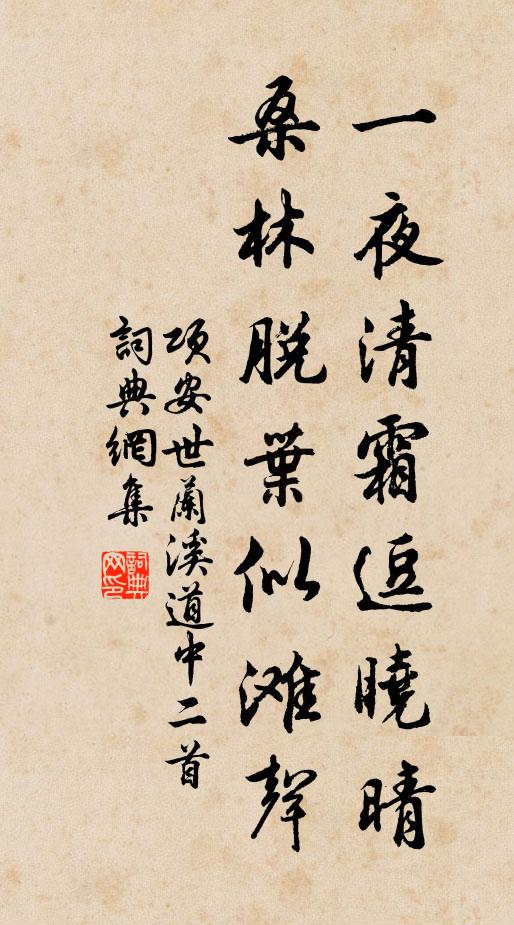 一夜清霜逗曉晴
桑林脱葉似滩聲
項安世蘭溪道中二首
詞典網集
詞典网印